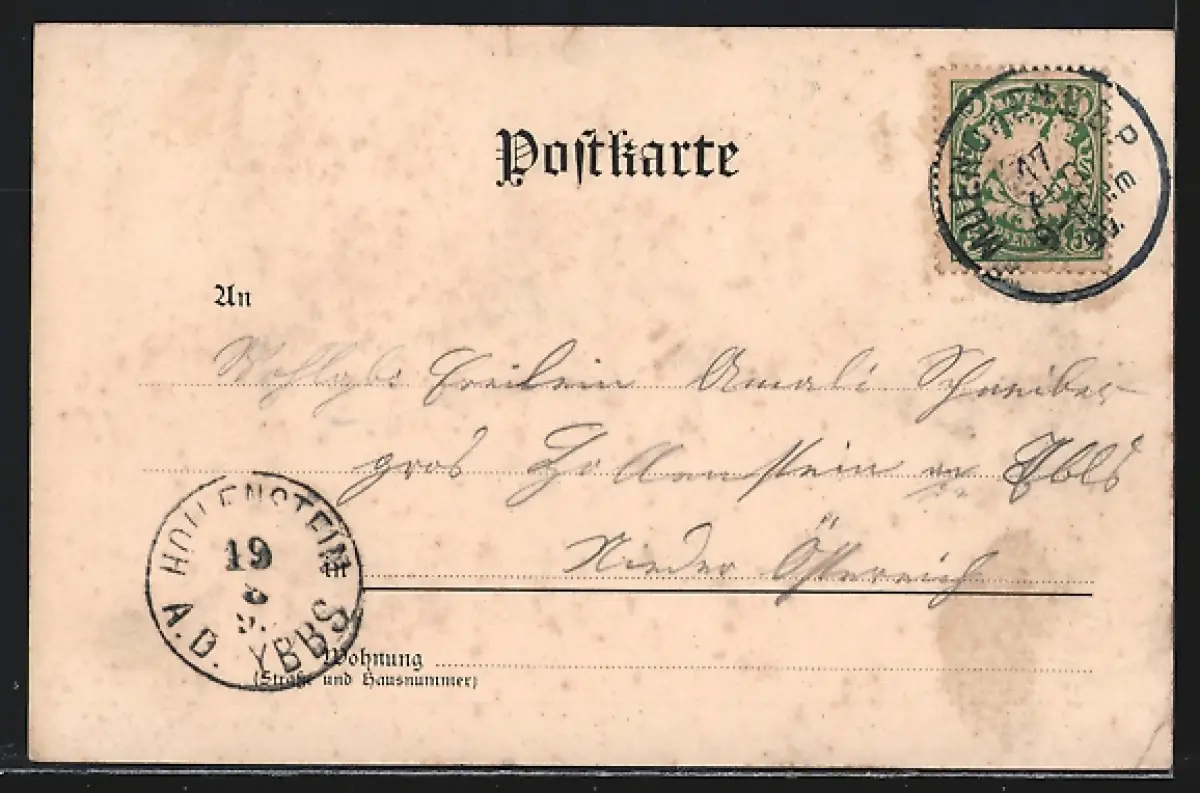 Postkarte
An
Wohlgb. Freilein Amali Schreiber
gros Hollenstein an Ybbs
in Nieder Österreich
Wohnung
(Straße und Hausnummer)
HOLLENSTEIN
19
8
A.D. YBBS
MUENCHEN
17